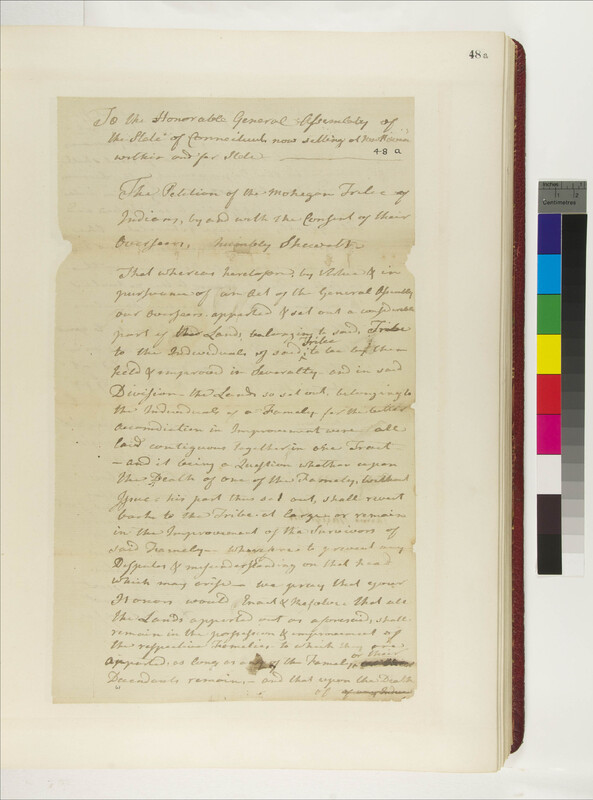 48a
To the Honorable General Assembley of
the State of Connecticut now setting at New Haven
within and for State
48 a
The Petition of the Mohegan Tribe of
Indians, by and with the Consent of their
Overseers, humbly Sheweth
That whereas heretofore, by Advice & in
pursuance of an Act of the General Assembly
our Overseers apported & set out a considerable
part of the Lands belonging to said Tribe
to the Individuals of said Tribe to be by them
held & improved in Severalty and in said
Division the Lands so set out, belonging to
the Individuals of a Famely for the better
Acomdiction in Improvement were all
laid contiguous together in one Tract
— and it being a Question whether upon
the Death of one of the Famely, without
Issue his part thus set out, shall revert
back to the Tribe at large or remain
in the Improvement of the Survivors of
said Famely — Wherefore to prevent any
Desputes & misunderstanding on that head
which may arise — we pray that your
Honors would Enact & Resolve that all
the Lands apported out as aforesaid, shall
remain in the possession & improvement of
the respective Families to which they are
apported, as long as any of the Famely or their
Decendants remain, — and that upon the Death
of